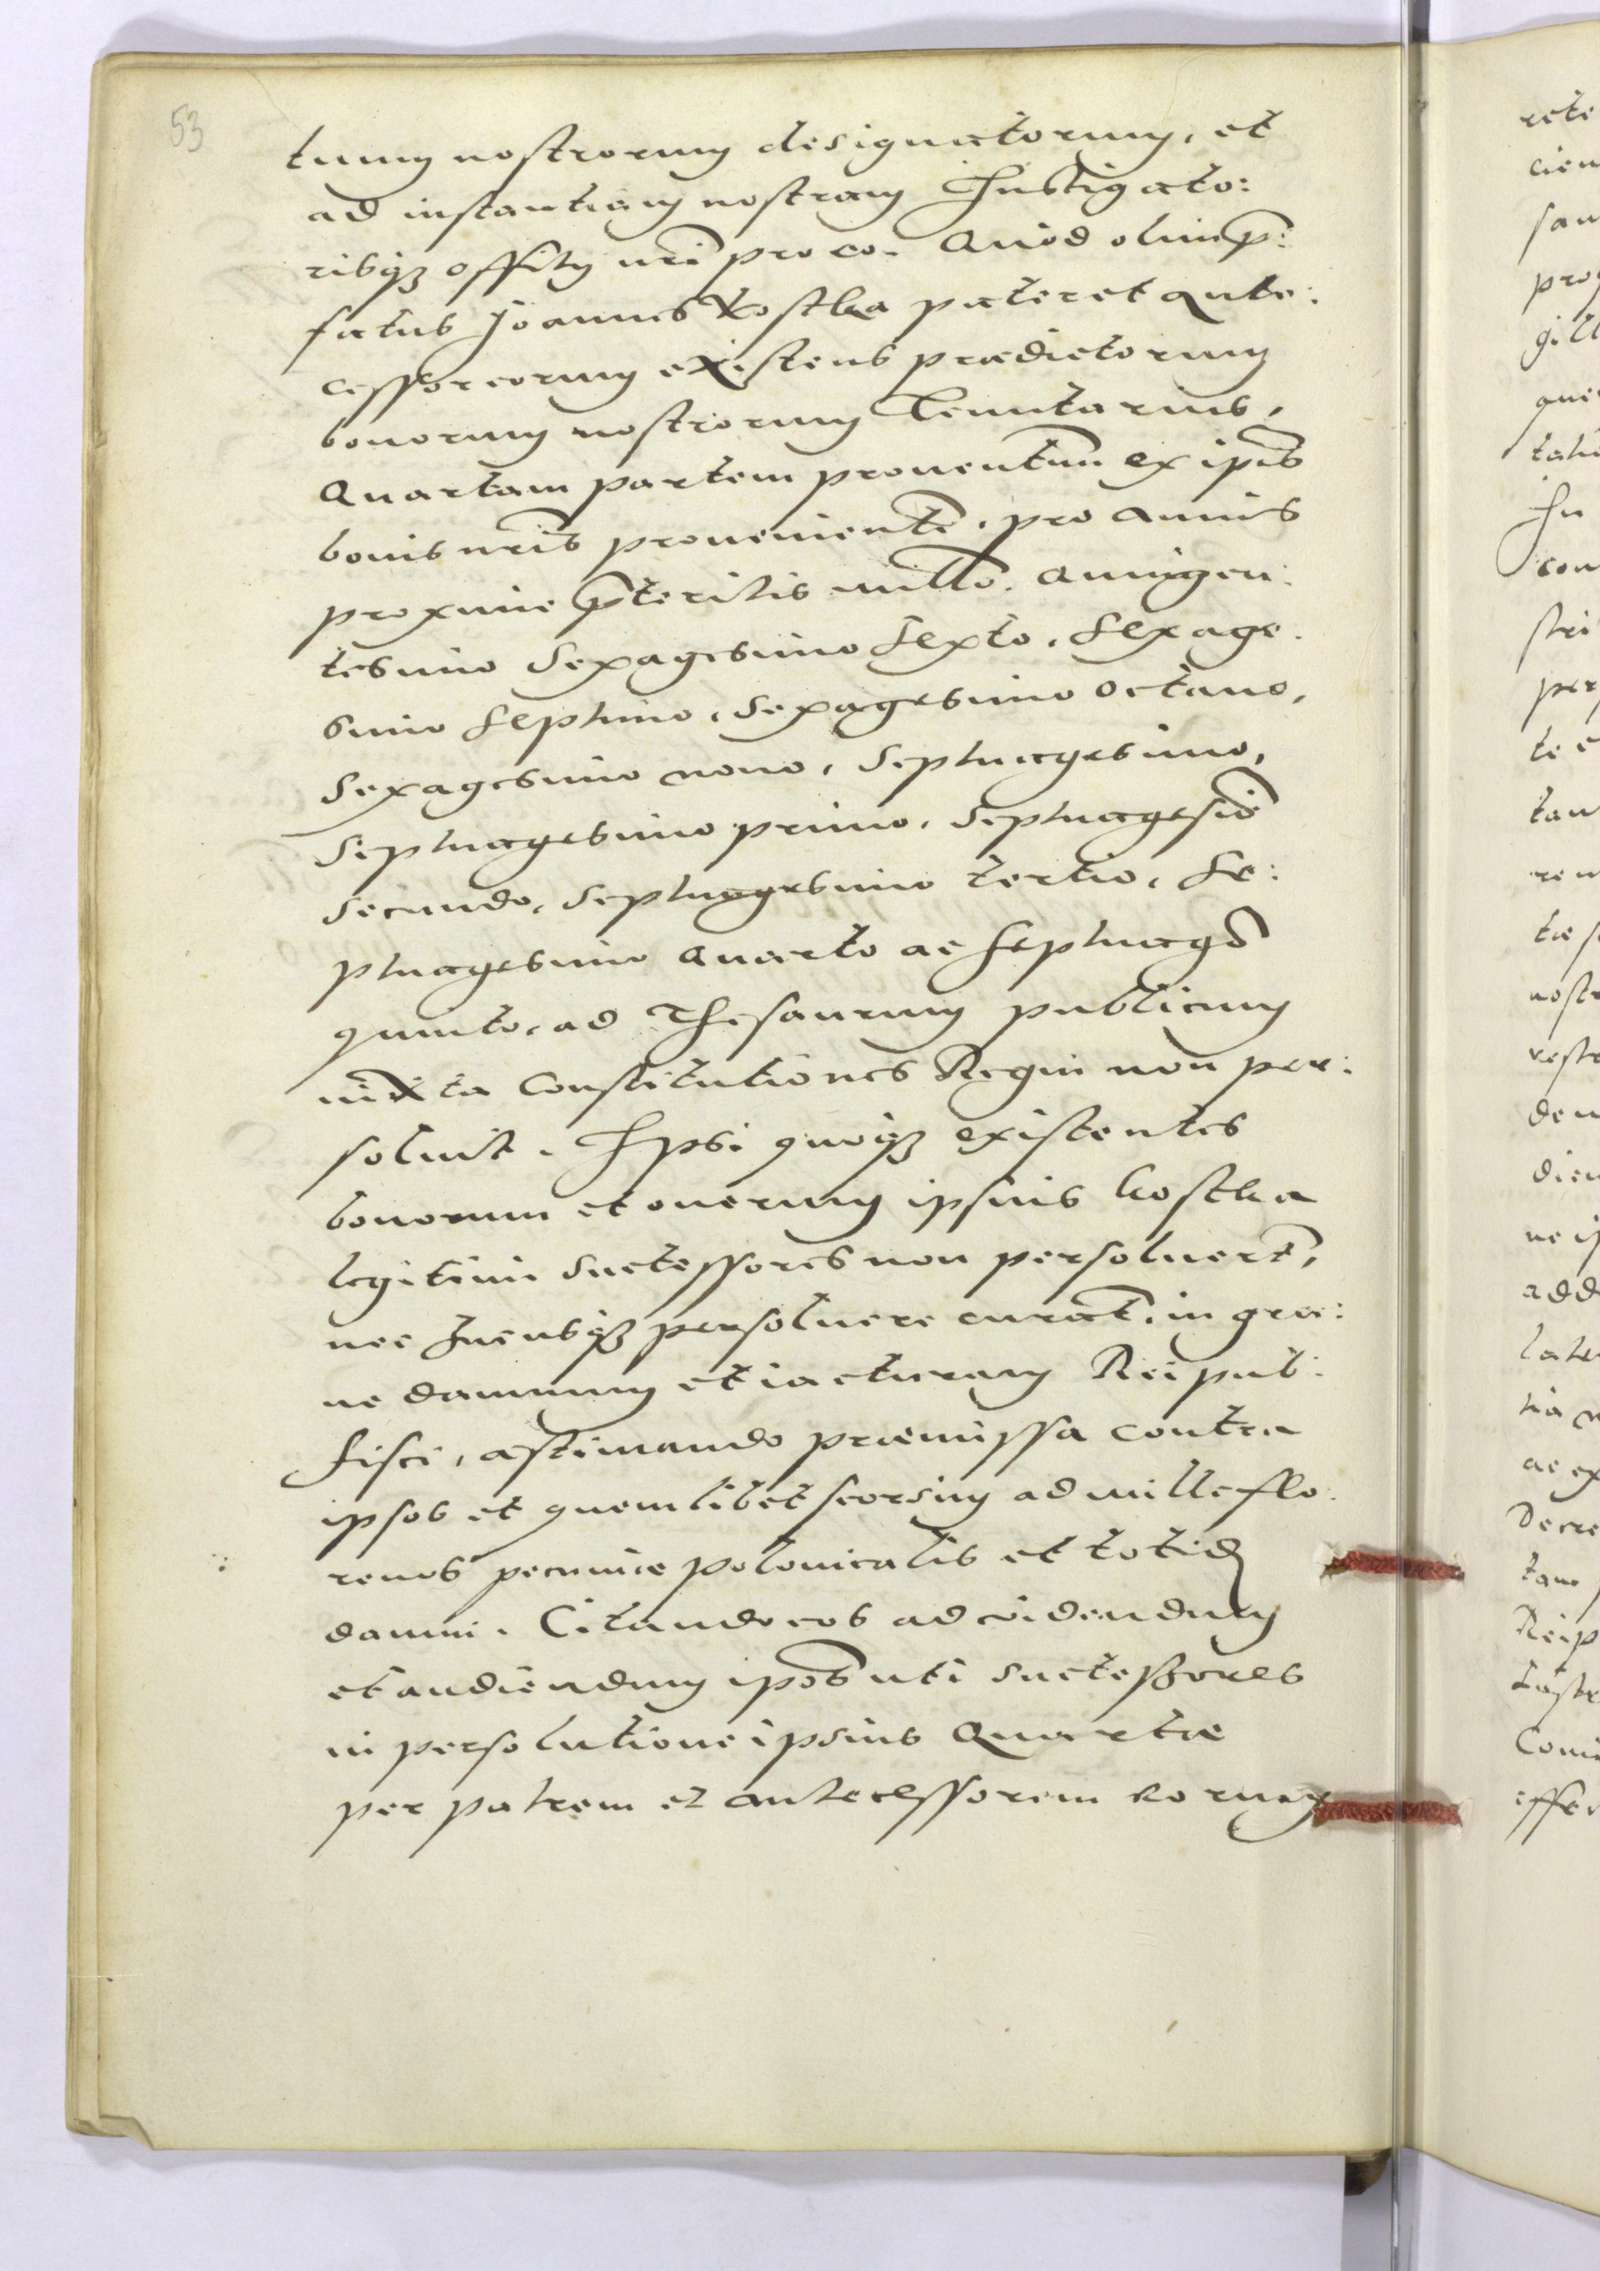 53
tum nostrorum designatorum, et
ad instantiam nostram Instigato:
ribqȝ offity nri pro eo. Quod olim p:
fatus Joannes Kostka pater et Ante:
cessor eorum existens prædictorum
bonorum nostrorum Tenutarius,
Quartam partem prouentuū ex ipīs
bonis nris proueniente. pro Annis
proxime pteritis millō. Quingen:
tesimo Sexagesimo Sexto, Sexage:
simo Septimo, Sexagesimo octauo,
Sexagesimo nono, Septuagesimo,
Septuagesimo primo, Septuagesiō
Secundo, Septuagesimo tertio, Se:
ptuagesimo Quarto ac Septuagō
quinto, ad Thesaurum publicum
iuxta Constitutiones Regni non per:
soluit. Ipsi quoqȝ existentes
bonorum et onerum ipsius Kostka
legitimi Suctessores non persoluert,
nec hucusqȝ persoluere curāt, in gra:
ue damnum et iacturam Reipub:
fisci, æstimando præmissa contra
ipsos et quemlibet seorsim ad mille flo:
renos pecuniæ polonicalis et totid
damni. Citando eos ad videndum
et audiendum ipōs uti Suctessores
in persolutione ipsius Quartæ
per patrem et antecessorem eorum